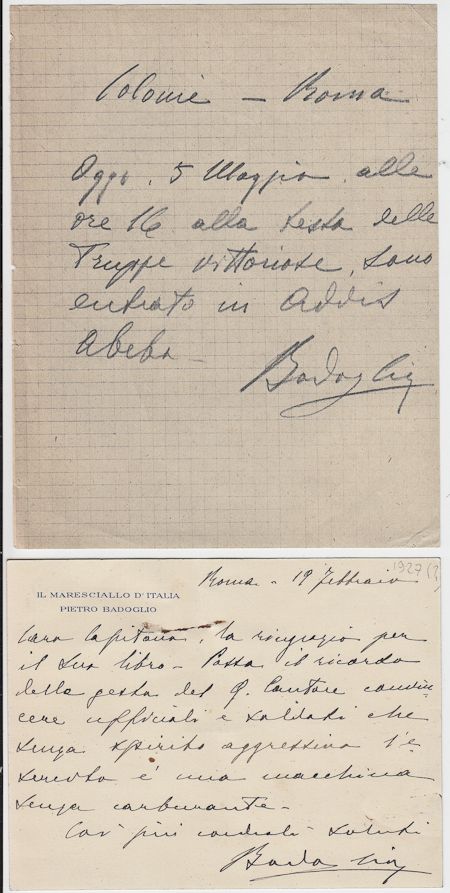 Colonie – Roma
Oggi, 5 Maggio, alle
ore 16 alla testa delle
Truppe vittoriose, sono
entrato in Addis
Abeba –
Badoglio
1927 (?)
Roma – 19 Febbraio
IL MARESCIALLO D'ITALIA
PIETRO BADOGLIO
Caro Capitano, la ringrazio per
il suo libro – Possa il ricordo
delle gesta del G. Cantore convin-
cere ufficiali e soldati che
senza spirito aggressivo l'e-
sercito è una macchina
senza carburante –
Coi più cordiali saluti
Badoglio